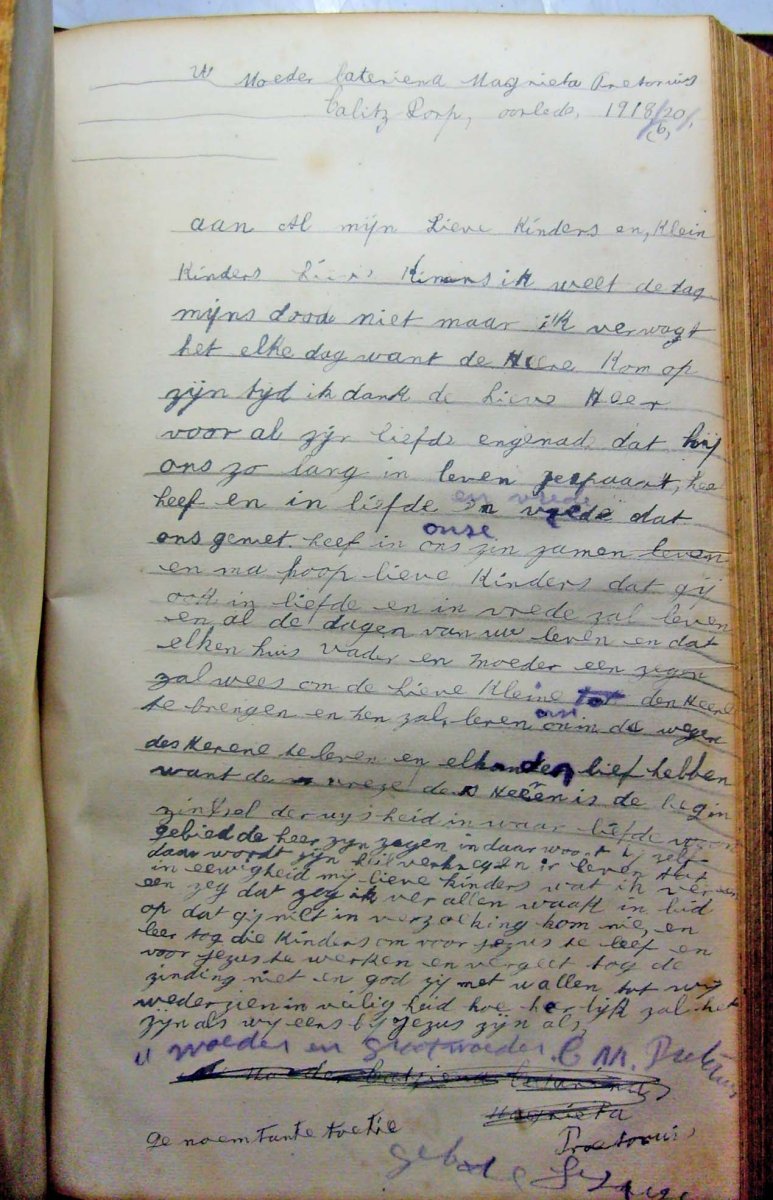 U Moeder Cateriena Magrieta Pretorius
Calitz Dorp, oorlede, 1918/20/
6,
aan Al mijn Lieve Kinders en, Klein
Kinders Lieve Kinders ik weet de dag
mijns dood niet maar ik verwagt
het elke dag want de Heere kom op
zijn tijd ik dank de Lieve Heer
voor al zijn liefde engenade dat hij
ons zo lang in leven gespaart, hee
heef en in liefde en vrede dat
en vrede
ons geniet heef in ons zen zamen leven
onze
en na hoop lieve Kinders dat gij
ook in liefde en in vrede zal leven
en al de dagen van uw leven en dat
elken huis vader en moeder een zegen
zal wees om de Lieve Kleine tot den Heere
te brengen en hen zal, leren om in de wegen
om
des Herene te leven en elkanden lief hebben
want de vreze des Heeren is de begin
zintsel der wijsheid in waar liefde woon
gebied de heer zyn zegen in daar woont hy zelf
daar wordt zijn heil verkregen en leven tot
in eewigheid my lieve kinders wat ik ver een
een zeg dat zeg ik ver allen waak in bid
op dat gij niet in verzoeking kom nie, en
leer tog die Kinders om voor jezus te leef en
voor jezus te werken en vergeet tog de
zinding niet en god zij met u allen tot wy
wederzien in veilig heid hoe herlijk zal het
zijn als wy eens by Jezus zijn als,
U moeder en Grootmoeder. C M. Pretorius
Moeder
Magrieta
ge noem tante toetie
Pretorius
gebore